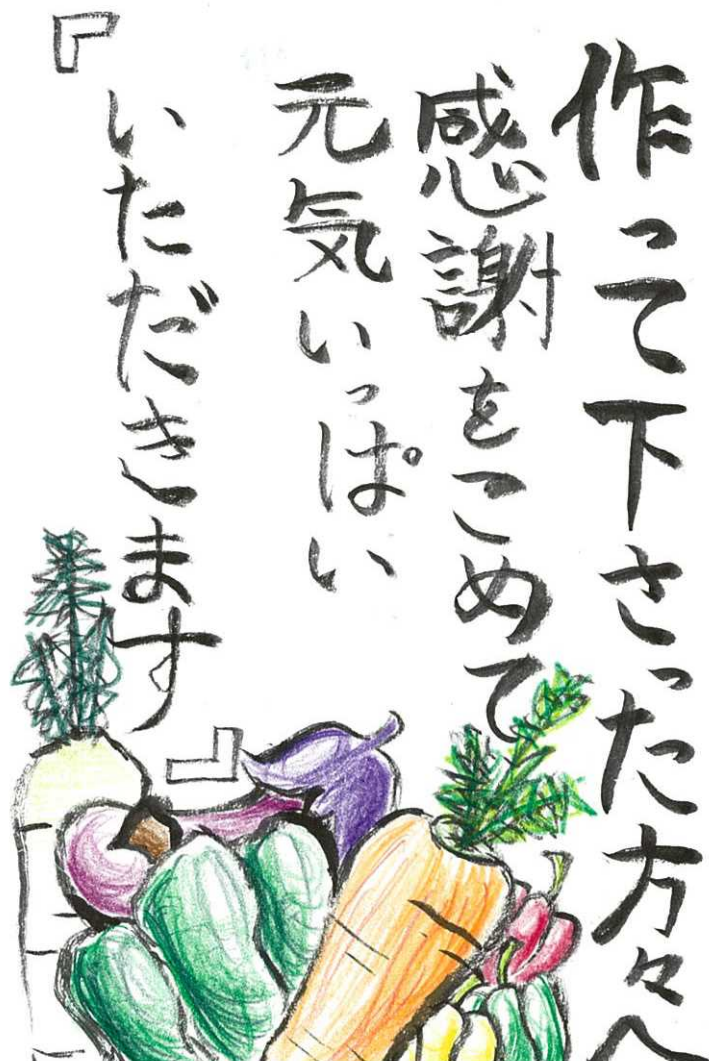 作って下さった方々へ
感謝をこめて
元気いっぱい
『いただきます』